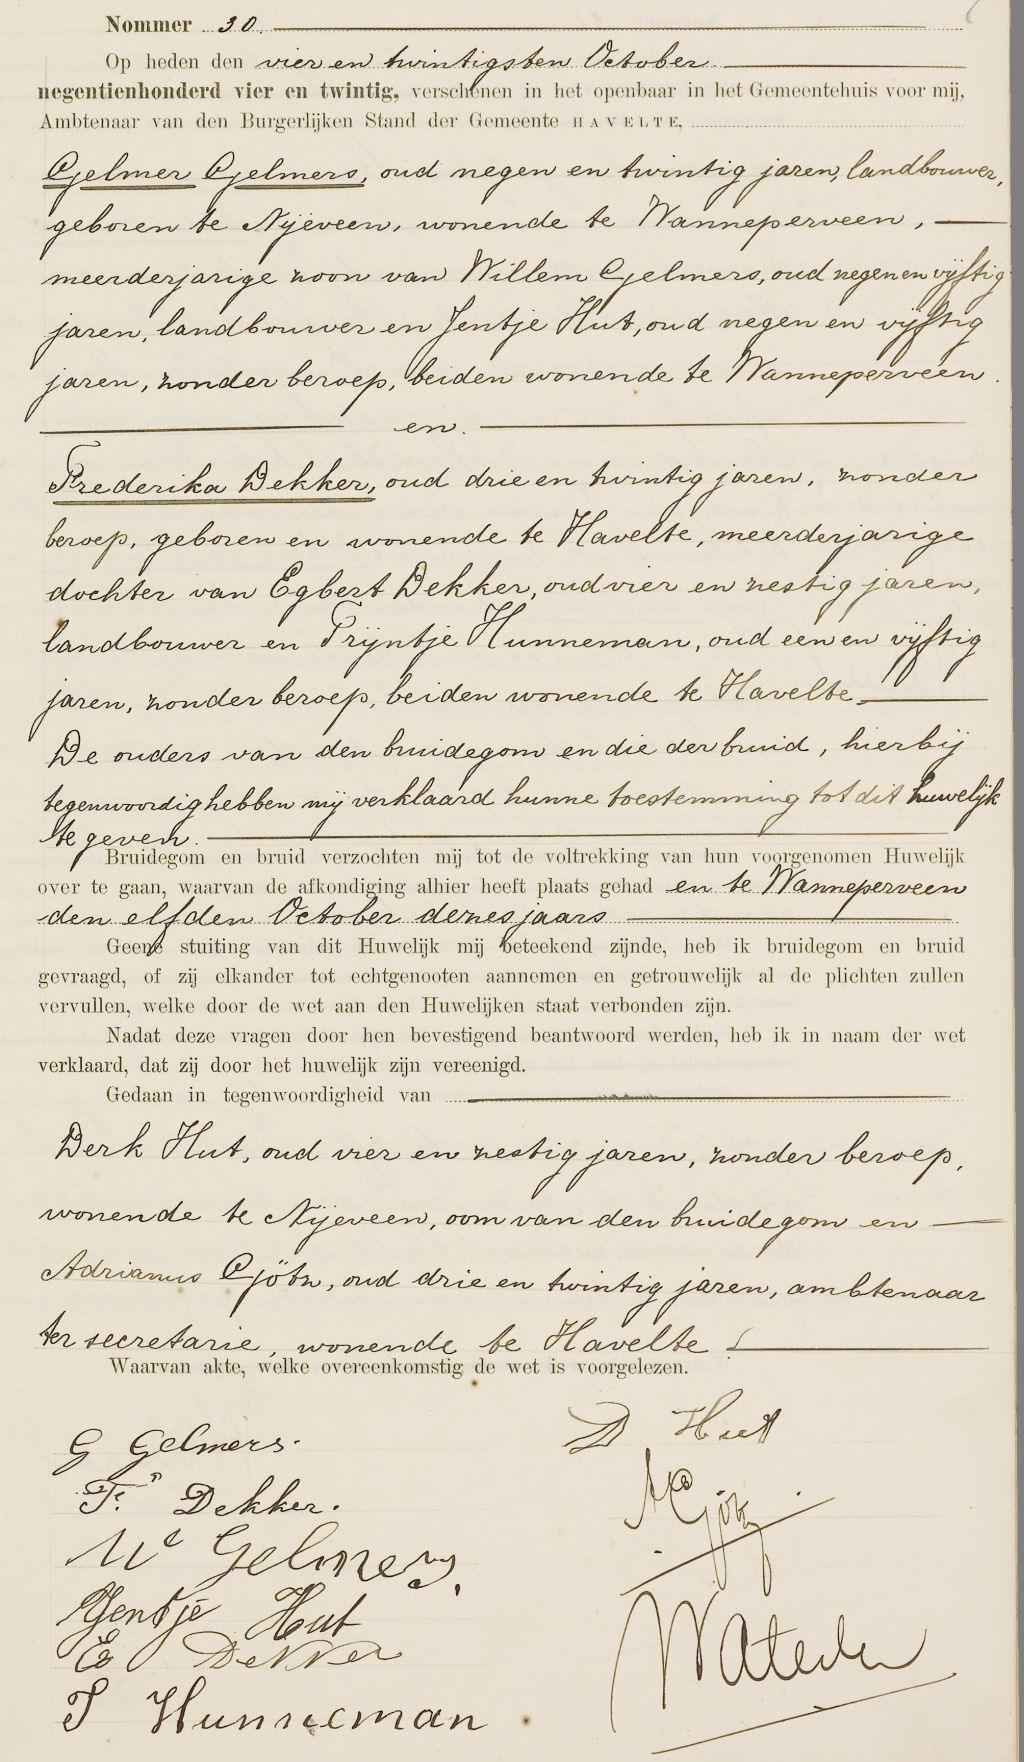 Nommer 30.
Op heden den vier en twintigsten October
negentienhonderd vier en twintig, verschenen in het openbaar in het Gemeentehuis voor mij,
Ambtenaar van den Burgerlijken Stand der Gemeente HAVELTE,
Gelmer Gelmers, oud negen en twintig jaren, landbouwer,
geboren te Nijeveen, wonende te Wanneperveen,
meerderjarige zoon van Willem Gelmers, oud negen en vijftig
jaren, landbouwer en Jentje Hut, oud negen en vijftig
jaren, zonder beroep, beiden wonende te Wanneperveen.
en.
Frederika Dekker, oud drie en twintig jaren, zonder
beroep, geboren en wonende te Havelte, meerderjarige
dochter van Egbert Dekker, oud vier en zestig jaren,
landbouwer en Trijntje Hunneman, oud een en vijftig
jaren, zonder beroep, beiden wonende te Havelte.
De ouders van den bruidegom en die der bruid, hierbij
tegenwoordig hebben mij verklaard hunne toestemming tot dit huwelijk
te geven.
Bruidegom en bruid verzochten mij tot de voltrekking van hun voorgenomen Huwelijk
over te gaan, waarvan de afkondiging alhier heeft plaats gehad en te Wanneperveen
den elfden October dezes jaars
Geene stuiting van dit Huwelijk mij beteekend zijnde, heb ik bruidegom en bruid
gevraagd, of zij elkander tot echtgenooten aannemen en getrouwelijk al de plichten zullen
vervullen, welke door de wet aan den Huwelijken staat verbonden zijn.
Nadat deze vragen door hen bevestigend beantwoord werden, heb ik in naam der wet
verklaard, dat zij door het huwelijk zijn vereenigd.
Gedaan in tegenwoordigheid van
Derk Hut, oud vier en zestig jaren, zonder beroep,
wonende te Nijeveen, oom van den bruidegom en
Adrianus Gjöbn, oud drie en twintig jaren, ambtenaar
ter secretarie, wonende te Havelte
Waarvan akte, welke overeenkomstig de wet is voorgelezen.
G Gelmers.
D Hut
Fr Dekker.
We Gelmers,
Jentje Hut
E Dekker
T Hunneman